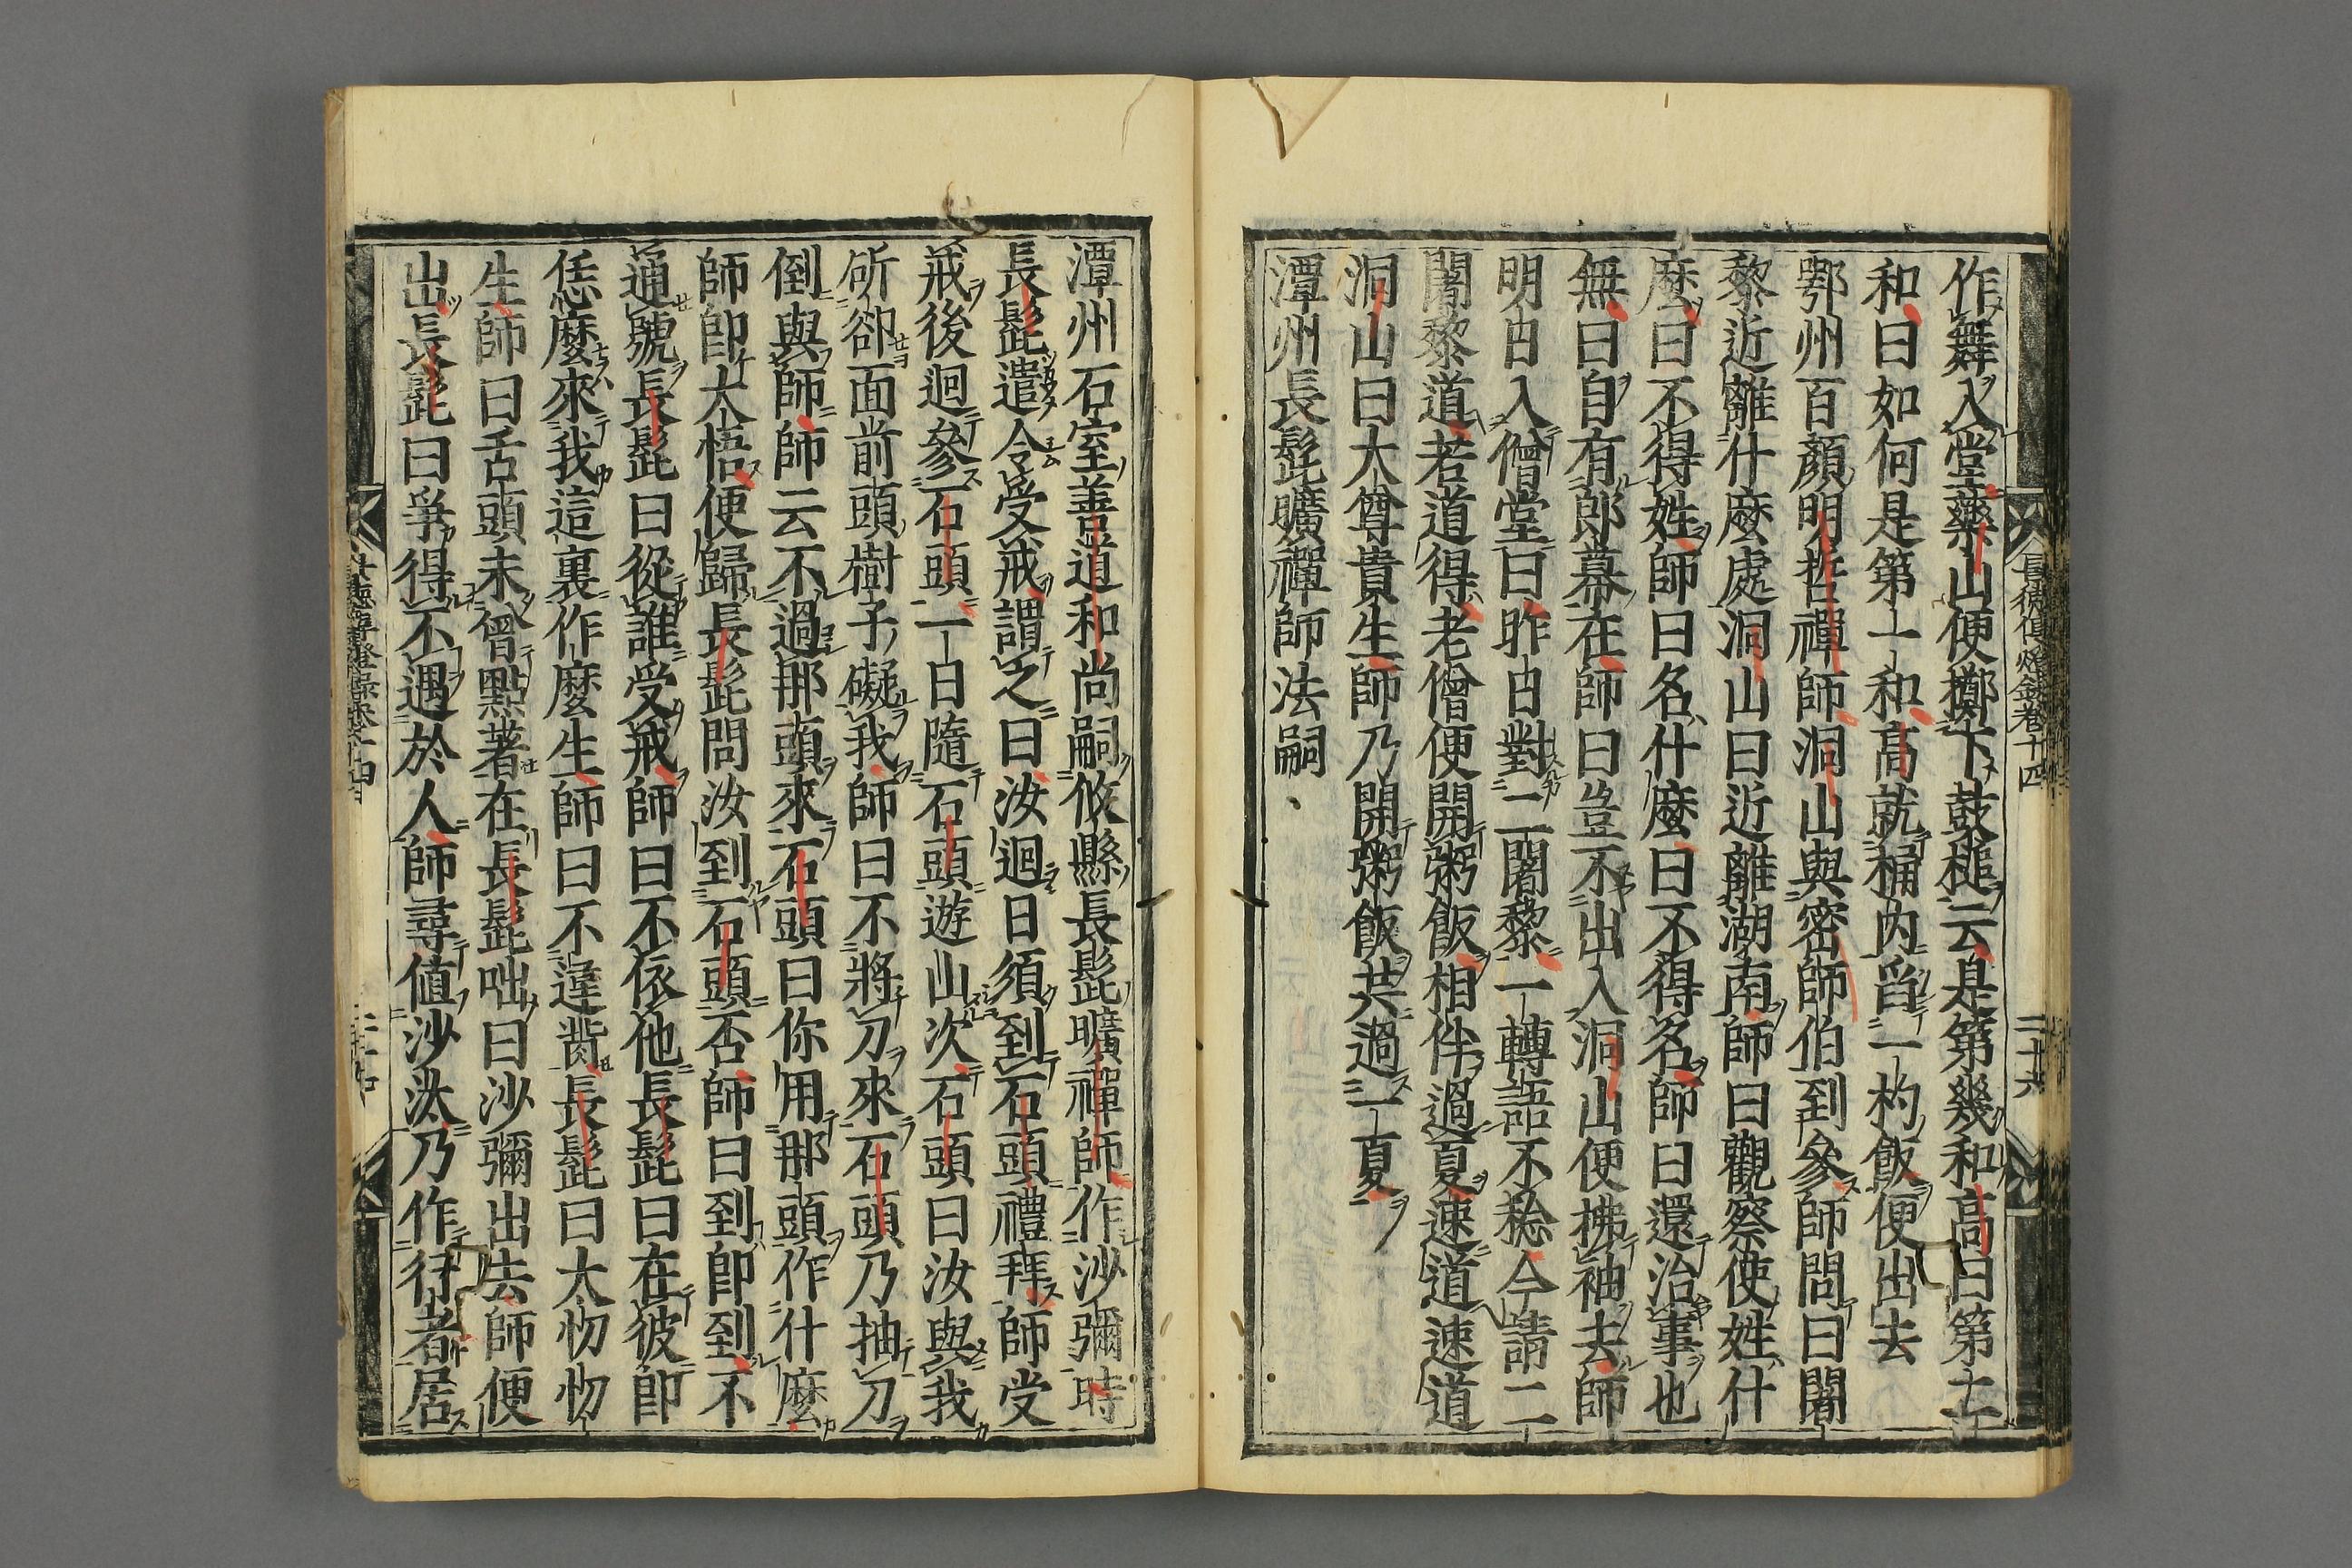 作舞入堂藥山便擲下鼓槌云是第幾和高曰第二
和曰如何是第一和高就桶內舀一杓飯便出去
鄂州百顏明哲禪師洞山與密師伯到參師問曰闍
黎近離什麼處洞山曰近離湖南師曰觀察使姓什
麼曰不得姓師曰名什麼曰不得名師曰還治事也
無曰自有郎幕在師曰豈不出入洞山便拂袖去師
明日入僧堂曰昨日對二闍黎一轉語不稔今請二
闍黎道若道得老僧便開粥飯相伴過夏速道速道
洞山曰太尊貴生師乃開粥飯共過一夏
潭州長髭曠禪師法嗣
潭州石室善道和尚嗣攸縣長髭曠禪師作沙彌時
長髭遣令受戒謂之曰汝迴日須到石頭禮拜師受
戒後迴參石頭一日隨石頭遊山次石頭曰汝與我
斫卻面前頭樹子礙我師曰不將刀來石頭乃抽刀
倒與師師云不過那頭來石頭曰你用那頭作什麼
師即大悟便歸長髭問汝到石頭否師曰到即到不
通號長髭曰從誰受戒師曰不依他長髭曰在彼即
恁麼來我這裏作麼生師曰不違背長髭曰太忉忉
生師曰舌頭未曾點著在長髭咄曰沙彌出去師便
出長髭曰爭得不遇於人師尋值沙汰乃作行者居